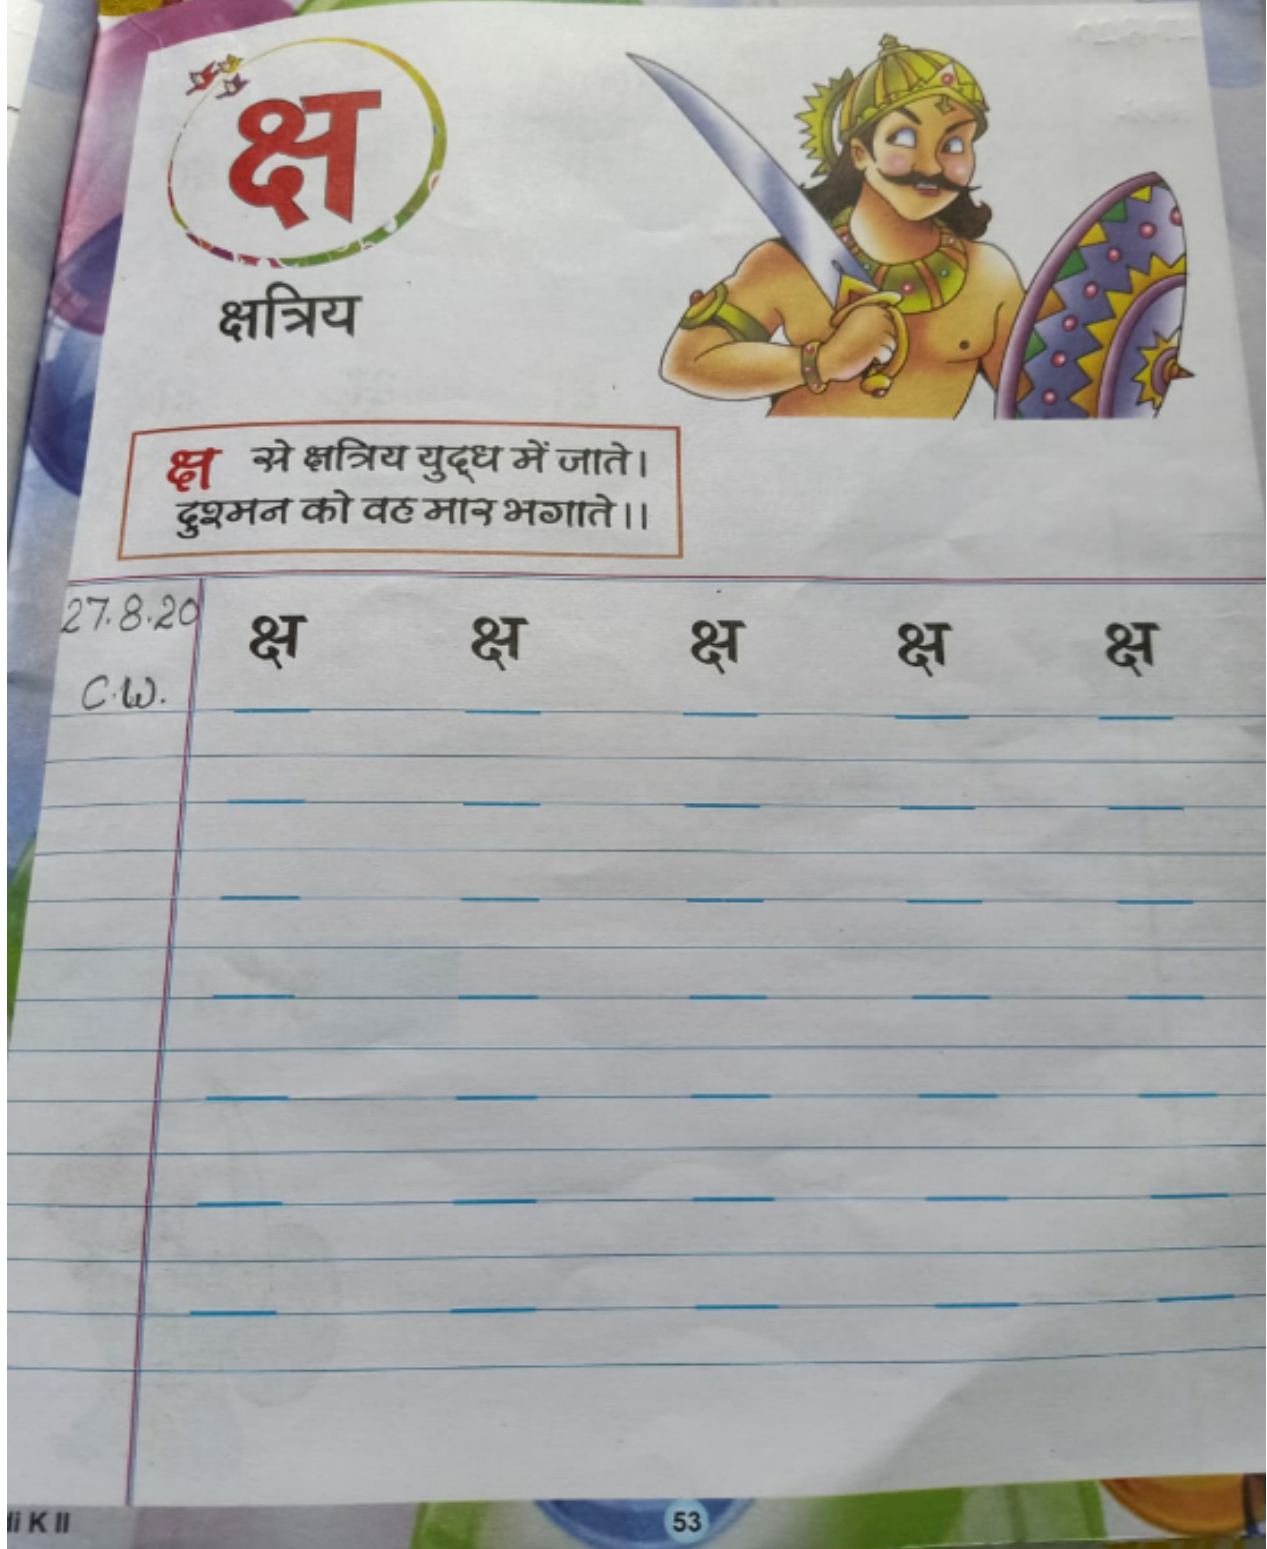 क्ष
क्षत्रिय
क्ष से क्षत्रिय युद्ध में जाते।
दुश्मन को वह मार भगाते।।
27.8.20
C.W.
क्ष क्ष क्ष क्ष क्ष
K II
53